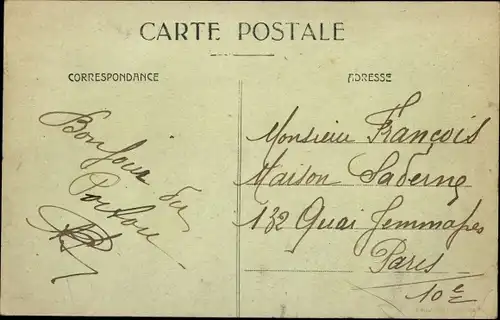 CARTE POSTALE
CORRESPONDANCE
ADRESSE
Bonjour du
Poitou
Monsieur François
Maison Laderne
132 Quai Jemmapes
Paris
10e